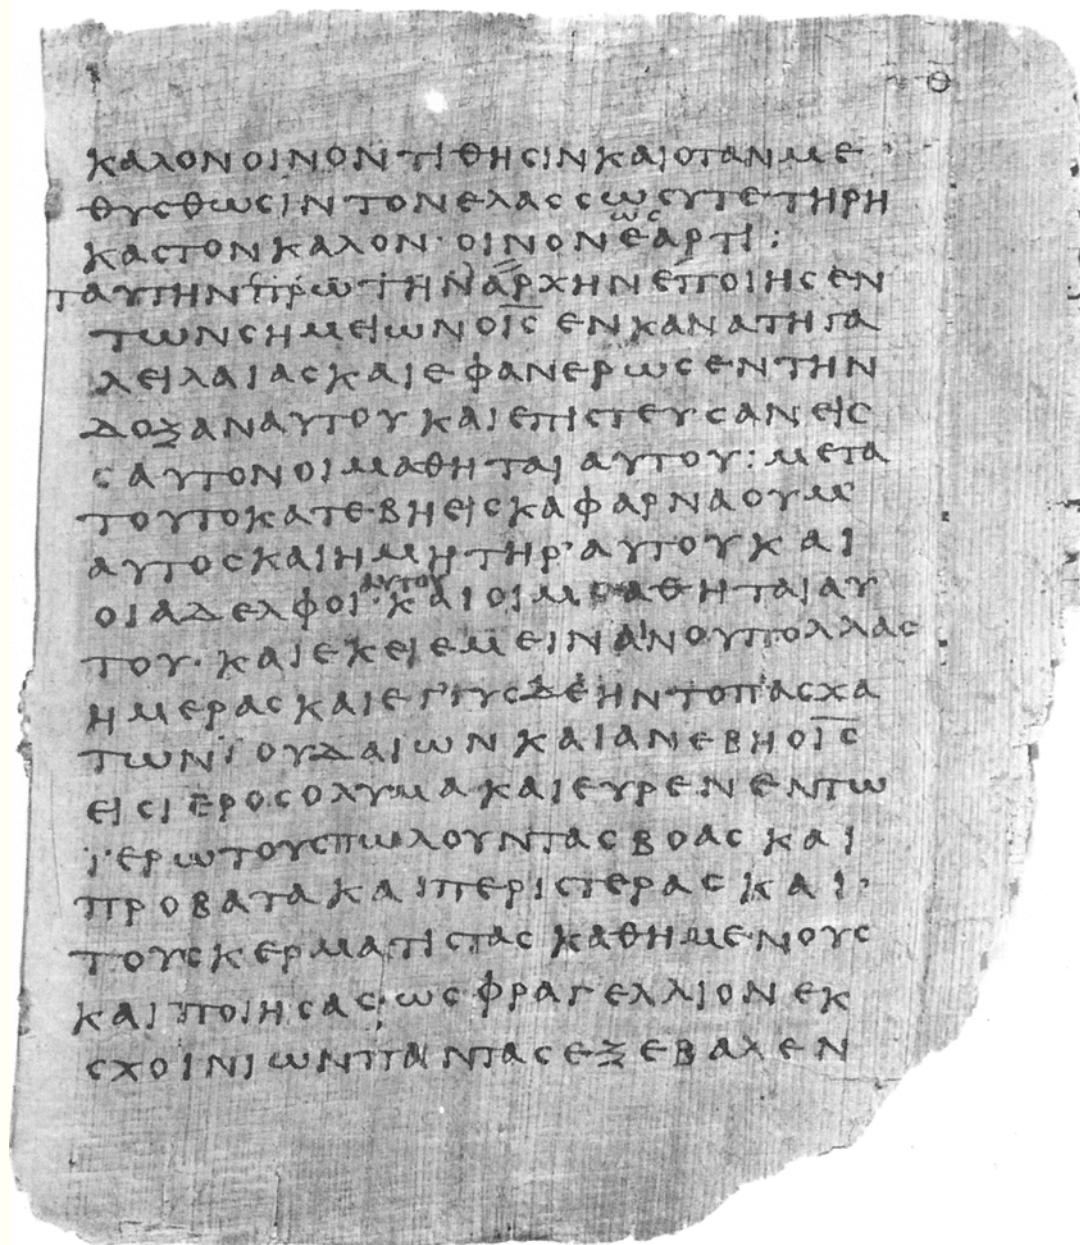 θ
καλον οινον τιθησιν και οταν με
θυσθωσιν τον ελασσω συ τετηρη
κας τον καλον· οινον ε`ως´ αρτι:
ταυτην πρωτην αρχην εποιησεν
των σημειων ο ι̅ς̅ εν κανα τη γα
λειλαιας και εφανερωσεν την
δοξαν αυτου και επιστευσαν εις
ς αυτον οι μαθηται αυτου: μετα
τουτο κατεβη εις καφαρναουμ
αυτος και η μητηρ᾽ αυτου και
οι αδελφοι `αυτου´ και οι μαθηται αυ
του· και εκει εμειναν ου πολλας
ημερας και εγγυς δε ην το πασχα
των ϊουδαιων και ανεβη ο ι̅ς̅
εις ιεροσολυμα και ευρεν εν τω
ϊερω τους πωλουντας βοας και
προβατα και περιστερας και
τους κερματιστας καθημενους
και ποιησας· ως φραγελλιον εκ
σχοινιων παντας εξεβαλεν